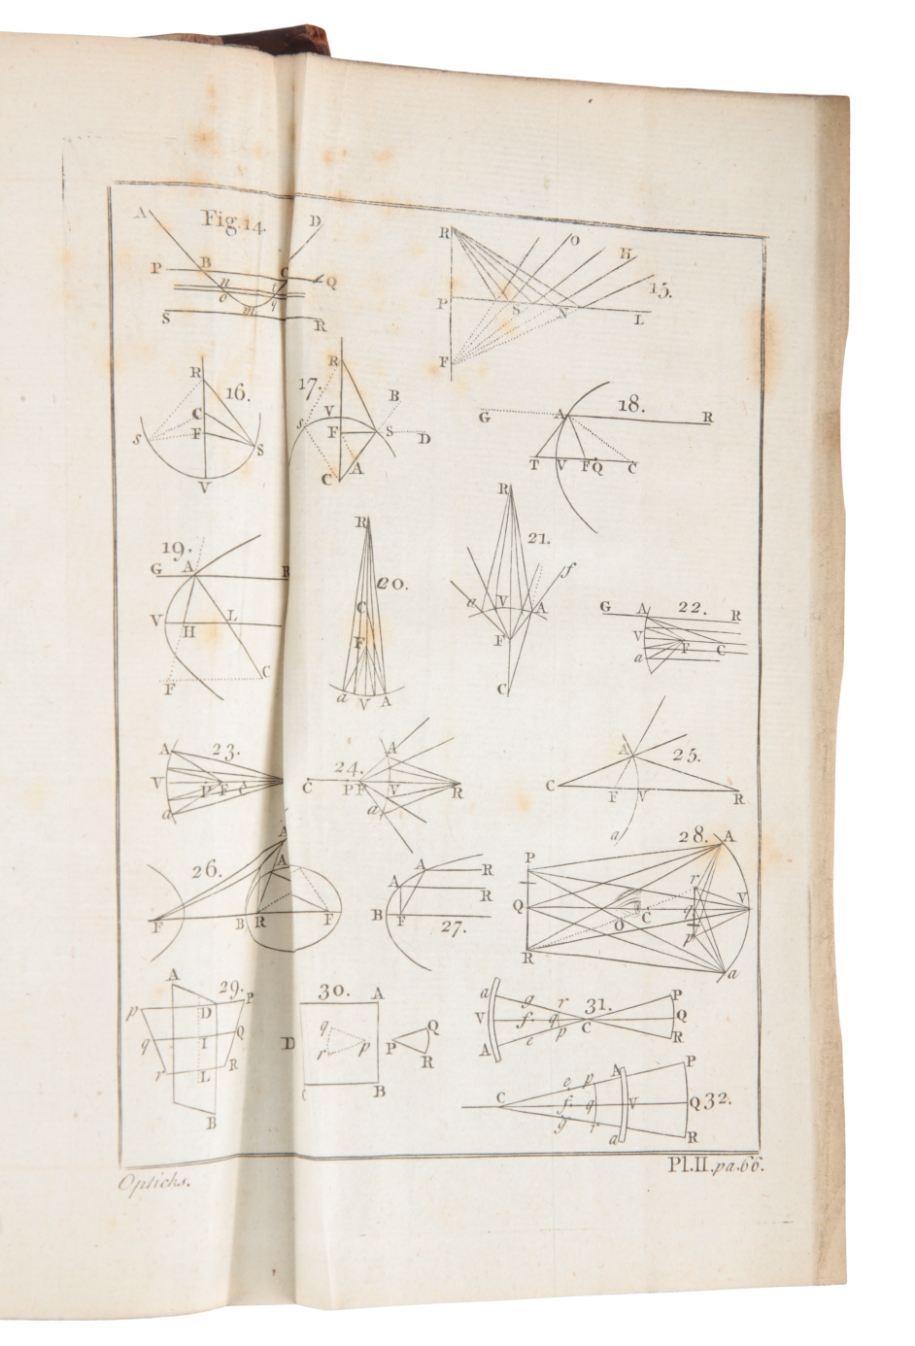 A Fig.14. D
P B C Q
n t
o m q
S R
R O H
15.
P S N L
F
R 16.
C
s F S
V
R
17. B
s V
F S D
C A
G A 18. R
T V F Q C
19.
G A R
V L
H
F C
R
20.
C
F
a V A
R
21.
f
a V A
F
C
G A 22. R
V
F C
a
A 23.
V P F C
a
A
24.
C P F V R
a
A 25.
C F V R
a
A
26. A
F B R F
A R
A R
B F 27.
28. A
P r
Q q V
O C
R p a
A 29. P
p D
q I Q
r L R
B
30. A
D q Q
r p P R
C B
a g r 31. P
V f q C Q
A e p R
P
e p A
C f q V Q 32.
g r a R
Pl.II.pa.66.
Opticks.